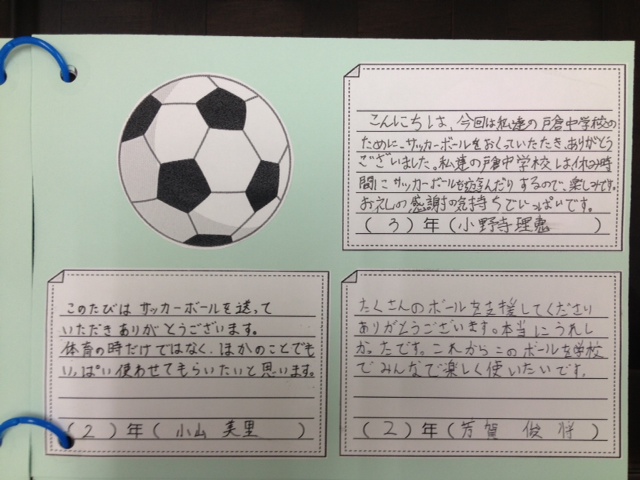 こんにちは、今回は私達の戸倉中学校の
ために、サッカーボールをおくっていただき、ありがとう
ございました。私達の戸倉中学校は、休み時
間にサッカーボールで遊んだりするので、楽しみです。
お礼の感謝の気持ちでいっぱいです。
(3)年(小野寺理恵)
このたびはサッカーボールを送って
いただきありがとうございます。
体育の時だけではなく、ほかのことでも
いっぱい使わせてもらいたいと思います。
(2)年(小山 美里)
たくさんのボールを支援してくださり
ありがとうございます。本当にうれし
かったです。これからこのボールを学校
でみんなで楽しく使いたいです。
(2)年(芳賀 俊将)